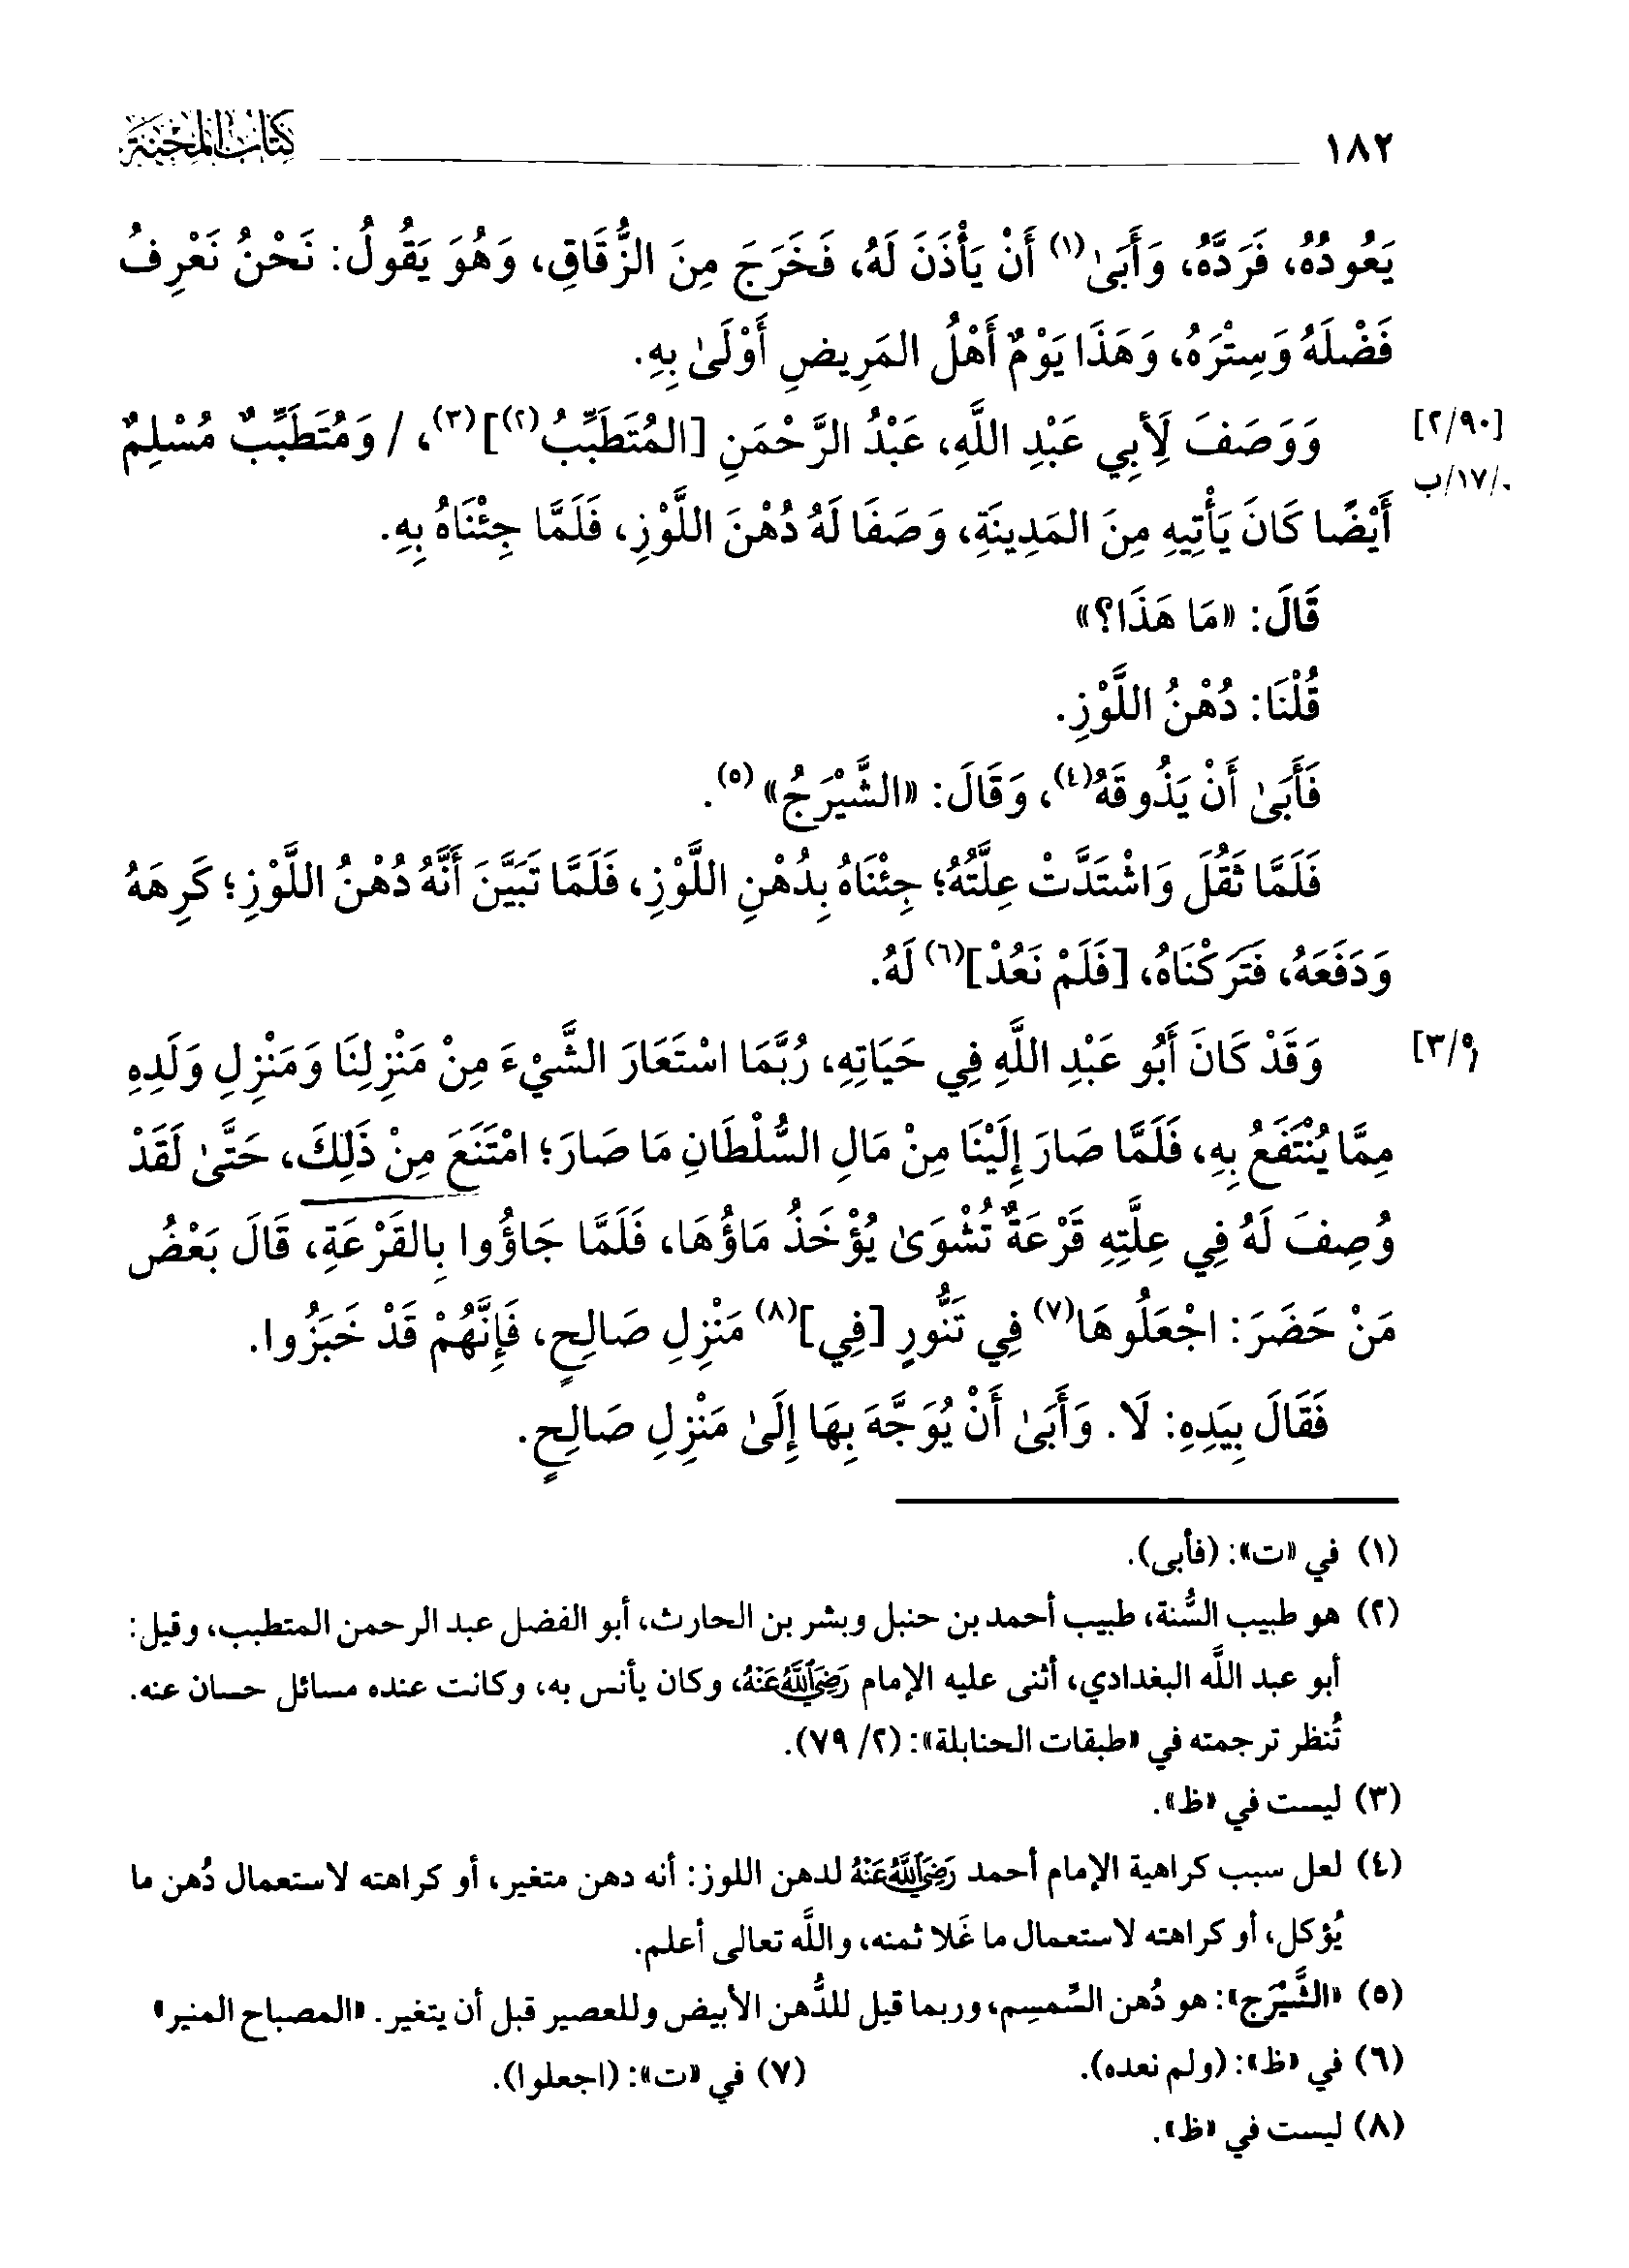 ١٨٢ كِتَابُ المِحْنَةِ
يَعُودُهُ، فَرَدَّهُ، وَأَبَىٰ(١) أَنْ يَأْذَنَ لَهُ، فَخَرَجَ مِنَ الزُّقَاقِ، وَهُوَ يَقُولُ: نَحْنُ نَعْرِفُ
فَضْلَهُ وَسِتْرَهُ، وَهَذَا يَوْمٌ أَهْلُ المَرِيضِ أَوْلَىٰ بِهِ.
[٢/٩٠] وَوَصَفَ لِأَبِي عَبْدِ اللَّهِ، عَبْدُ الرَّحْمَنِ [المُتَطَبِّبُ(٢)](٣)، / وَمُتَطَبِّبٌ مُسْلِمٌ
/١٧/ب
أَيْضًا كَانَ يَأْتِيهِ مِنَ المَدِينَةِ، وَصَفَا لَهُ دُهْنَ اللَّوْزِ، فَلَمَّا جِئْنَاهُ بِهِ.
قَالَ: «مَا هَذَا؟»
قُلْنَا: دُهْنُ اللَّوْزِ.
فَأَبَىٰ أَنْ يَذُوقَهُ(٤)، وَقَالَ: «الشَّيْرَجُ»(٥).
فَلَمَّا ثَقُلَ وَاشْتَدَّتْ عِلَّتُهُ؛ جِئْنَاهُ بِدُهْنِ اللَّوْزِ، فَلَمَّا تَبَيَّنَ أَنَّهُ دُهْنُ اللَّوْزِ؛ كَرِهَهُ
وَدَفَعَهُ، فَتَرَكْنَاهُ، [فَلَمْ نَعُدْ](٦) لَهُ.
[٣/٩ وَقَدْ كَانَ أَبُو عَبْدِ اللَّهِ فِي حَيَاتِهِ، رُبَّمَا اسْتَعَارَ الشَّيْءَ مِنْ مَنْزِلِنَا وَمَنْزِلِ وَلَدِهِ
مِمَّا يُنْتَفَعُ بِهِ، فَلَمَّا صَارَ إِلَيْنَا مِنْ مَالِ السُّلْطَانِ مَا صَارَ؛ امْتَنَعَ مِنْ ذَلِكَ، حَتَّىٰ لَقَدْ
وُصِفَ لَهُ فِي عِلَّتِهِ قَرْعَةٌ تُشْوَىٰ يُؤْخَذُ مَاؤُهَا، فَلَمَّا جَاؤُوا بِالقَرْعَةِ، قَالَ بَعْضُ
مَنْ حَضَرَ: اجْعَلُوهَا(٧) فِي تَنُّورٍ [فِي](٨) مَنْزِلِ صَالِحٍ، فَإِنَّهُمْ قَدْ خَبَزُوا.
فَقَالَ بِيَدِهِ: لَا. وَأَبَىٰ أَنْ يُوَجَّهَ بِهَا إِلَىٰ مَنْزِلِ صَالِحٍ.
(١) في «ت»: (فأبى).
(٢) هو طبيب السُّنة، طبيب أحمد بن حنبل وبشر بن الحارث، أبو الفضل عبد الرحمن المتطبب، وقيل:
أبو عبد اللَّه البغدادي، أثنى عليه الإمام رَضِيَ اللَّهُ عَنْهُ، وكان يأنس به، وكانت عنده مسائل حسان عنه.
تُنظر ترجمته في «طبقات الحنابلة»: (٢/ ٧٩).
(٣) ليست في «ظ».
(٤) لعل سبب كراهية الإمام أحمد رَضِيَ اللَّهُ عَنْهُ لدهن اللوز: أنه دهن متغير، أو كراهته لاستعمال دُهن ما
يُؤكل، أو كراهته لاستعمال ما غَلا ثمنه، واللَّه تعالى أعلم.
(٥) «الشَّيْرَج»: هو دُهن السِّمسِم، وربما قيل للدُّهن الأبيض وللعصير قبل أن يتغير. «المصباح المنير»
(٦) في «ظ»: (ولم نعده). (٧) في «ت»: (اجعلوا).
(٨) ليست في «ظ».